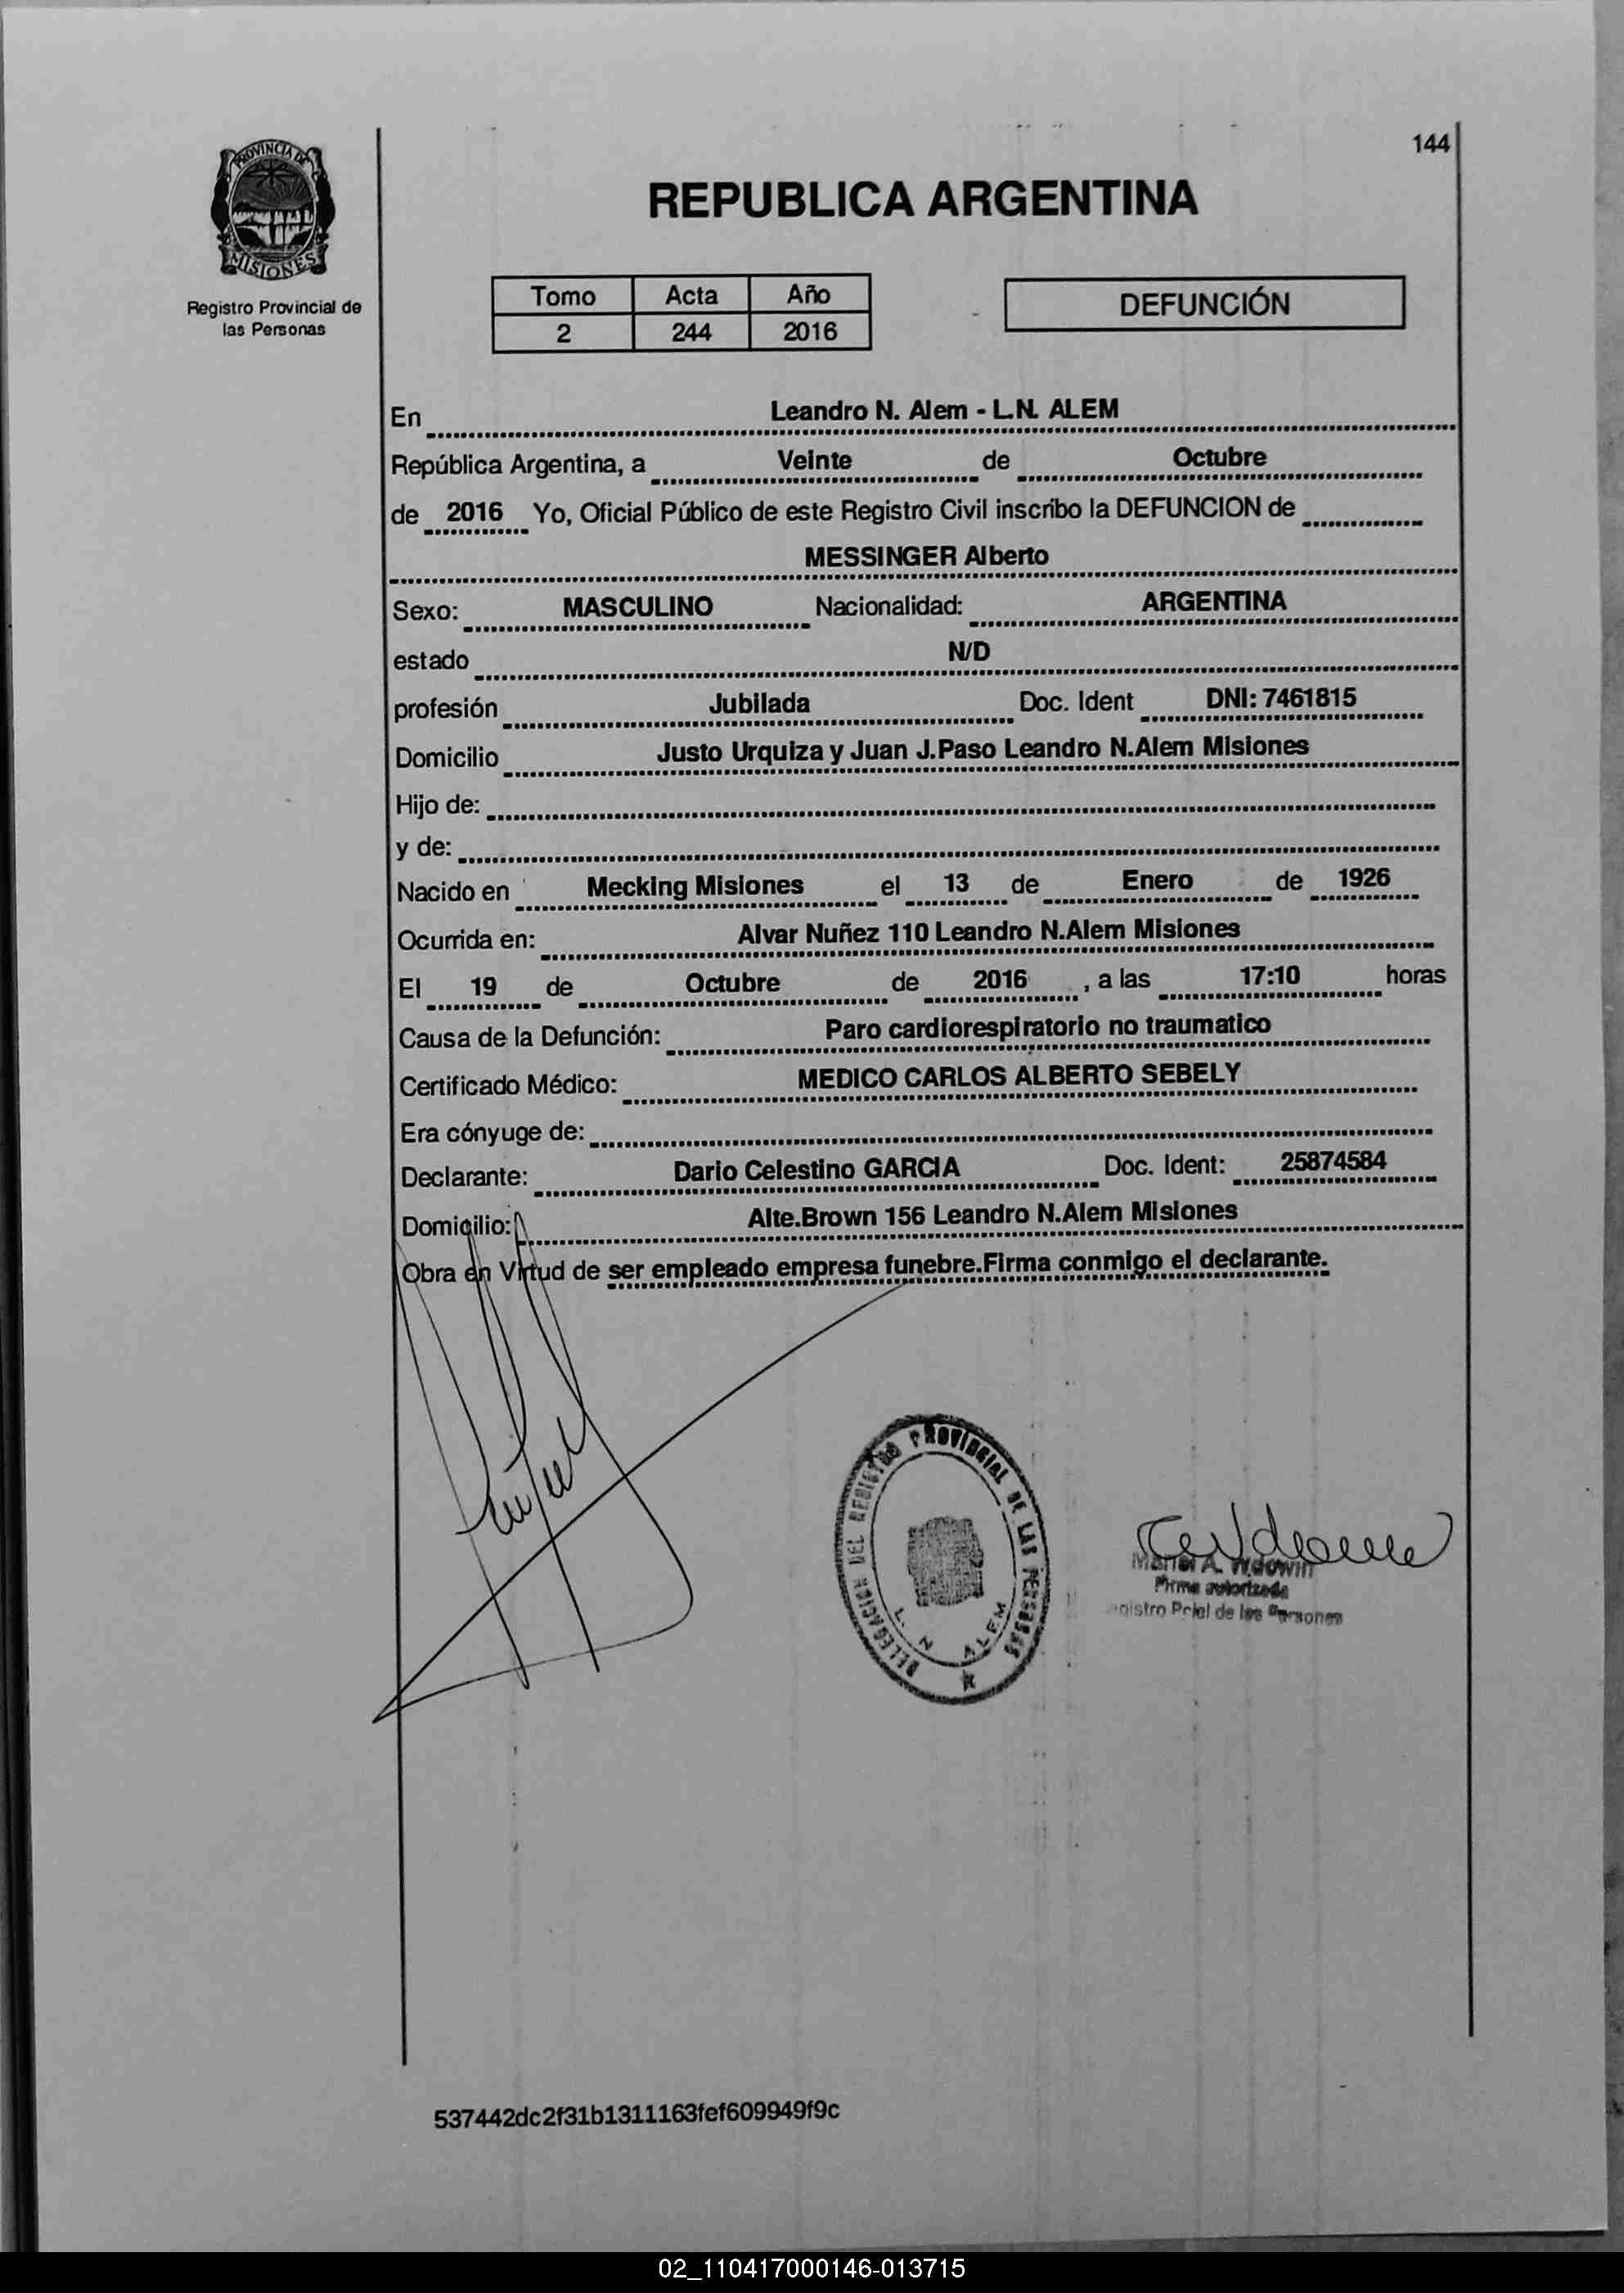 144
PROVINCIA DE
MISIONES
Registro Provincial de
las Personas
REPUBLICA ARGENTINA
Tomo Acta Año
2 244 2016
DEFUNCIÓN
En Leandro N. Alem - L.N. ALEM
República Argentina, a Veinte de Octubre
de 2016 Yo, Oficial Público de este Registro Civil inscribo la DEFUNCION de
MESSINGER Alberto
Sexo: MASCULINO Nacionalidad: ARGENTINA
estado N/D
profesión Jubilada Doc. Ident DNI: 7461815
Domicilio Justo Urquiza y Juan J.Paso Leandro N.Alem Misiones
Hijo de:
y de:
Nacido en Mecking Misiones el 13 de Enero de 1926
Ocurrida en: Alvar Nuñez 110 Leandro N.Alem Misiones
El 19 de Octubre de 2016 , a las 17:10 horas
Causa de la Defunción: Paro cardiorespiratorio no traumatico
Certificado Médico: MEDICO CARLOS ALBERTO SEBELY
Era cónyuge de:
Declarante: Dario Celestino GARCIA Doc. Ident: 25874584
Domicilio: Alte.Brown 156 Leandro N.Alem Misiones
Obra en Virtud de ser empleado empresa funebre.Firma conmigo el declarante.
DELEGACION DEL REGISTRO PROVINCIAL DE LAS PERSONAS
L. N ALEM
A. Wdowin
Firma autorizada
Pcial de las Personas
537442dc2f31b1311163fef609949f9c
02_110417000146-013715